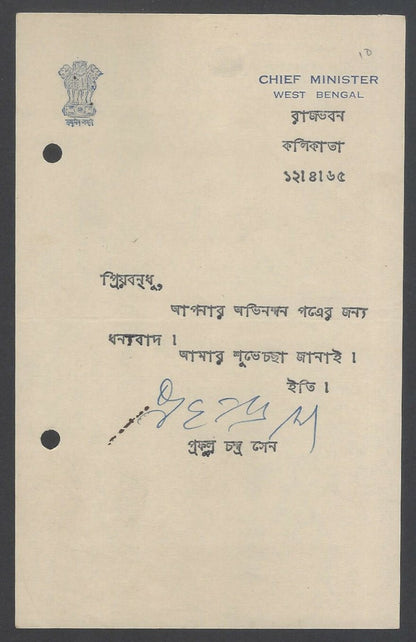 ১০
CHIEF MINISTER
WEST BENGAL
রাজভবন
কলিকাতা
১২।৪।৬৫
প্রিয়বন্ধু,
আপনার অভিনন্দন পত্রের জন্য
ধন্যবাদ ।
আমার শুভেচ্ছা জানাই ।
ইতি ।
প্রফুল্ল চন্দ্র সেন